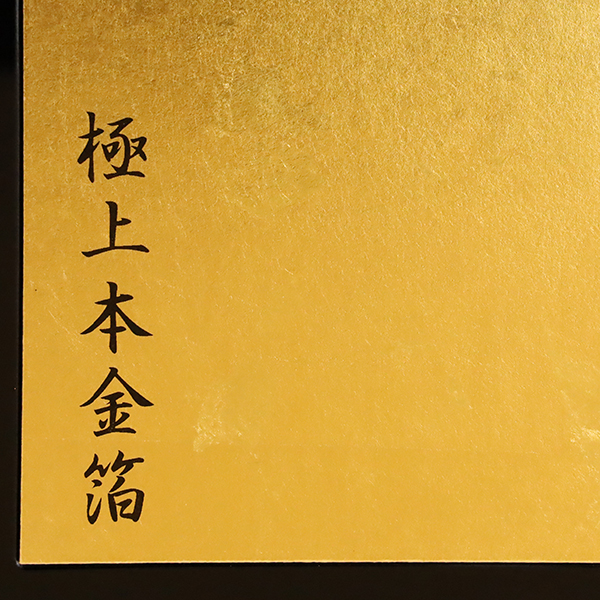 極上本金箔